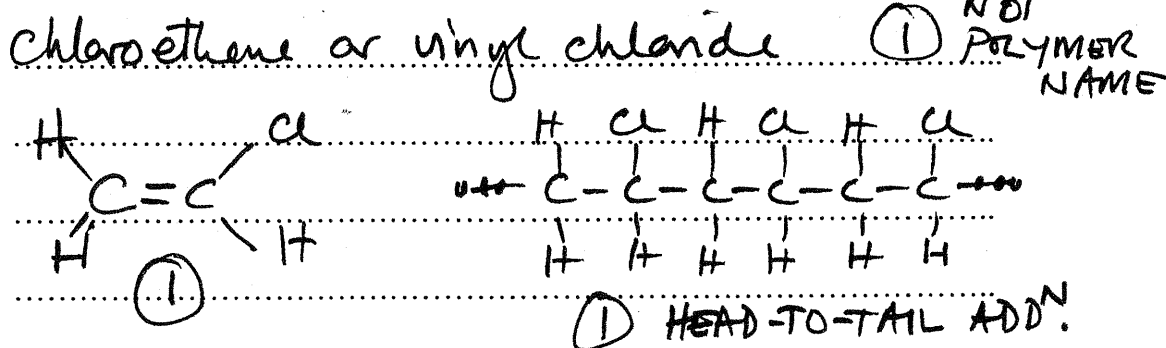 chloroethene or vinyl chloride ① NOT
POLYMER
NAME
H Cl H Cl H Cl H Cl
C=C C-C-C-C-C-C
H H H H H H H H
①
① HEAD-TO-TAIL ADDᴺ.